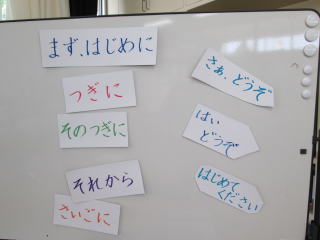 まず、はじめに
つぎに
そのつぎに
それから
さいごに
さぁ、どうぞ
はい
どうぞ
はじめて
ください